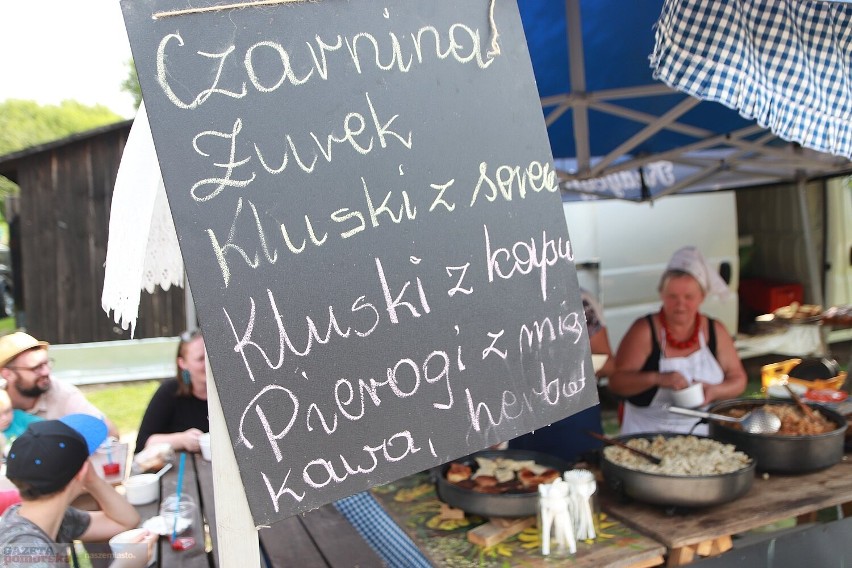 Czarnina
Żurek
Kluski z serem
Kluski z kapu
Pierogi z mię
kawa, herbat
GAZETA
pomorska
NASZEMIASTO